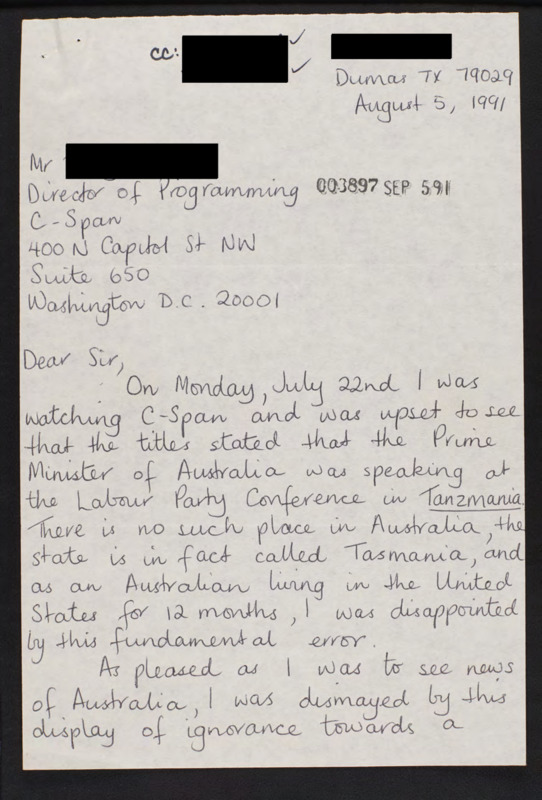 cc:
Dumas TX 79029
August 5, 1991
Mr
Director of Programming 003897 SEP 591
C-Span
400 N Capitol St NW
Suite 650
Washington D.C. 20001
Dear Sir,
On Monday, July 22nd I was
watching C-Span and was upset to see
that the titles stated that the Prime
Minister of Australia was speaking at
the Labour Party Conference in Tanzmania.
There is no such place in Australia, the
state is in fact called Tasmania, and
as an Australian living in the United
States for 12 months, I was disappointed
by this fundamental error.
As pleased as I was to see news
of Australia, I was dismayed by this
display of ignorance towards a